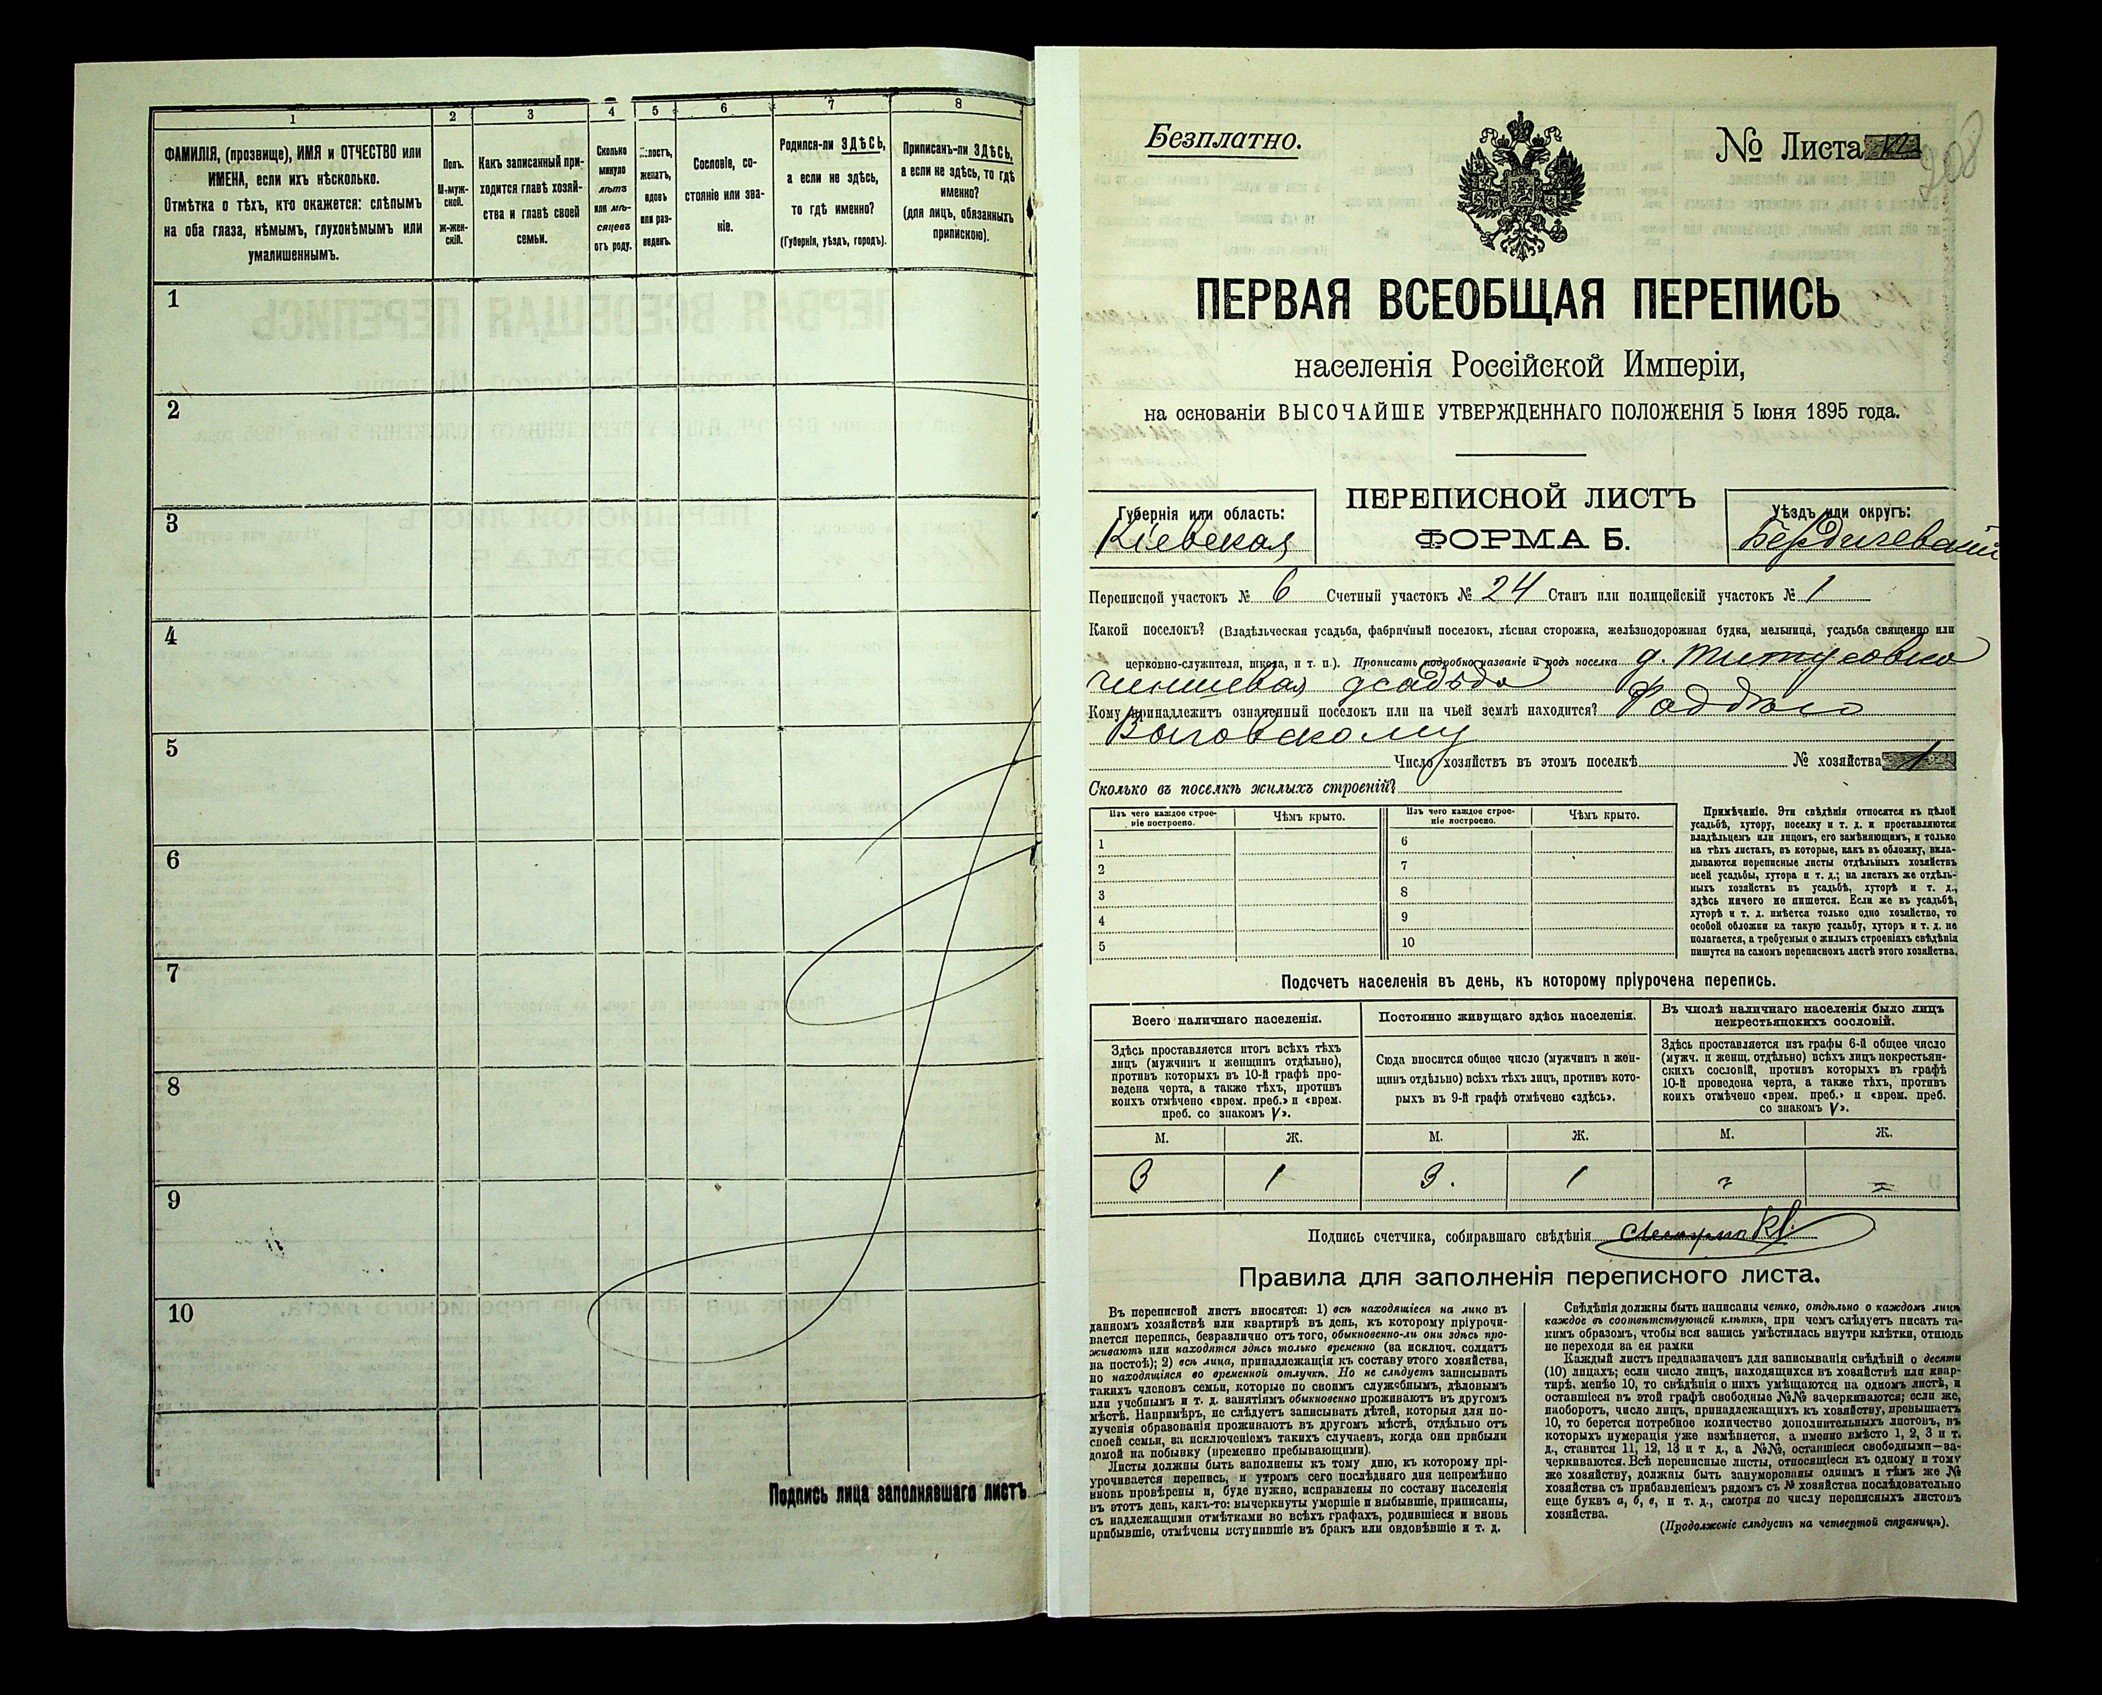 1
2
3
4
5
6
7
8
ФАМИЛІЯ, (прозвище), ИМЯ и ОТЧЕСТВО или
ИМЕНА, если ихъ нѣсколько.
Отмѣтка о тѣхъ, кто окажется: слѣпымъ
на оба глаза, нѣмымъ, глухонѣмымъ или
умалишеннымъ.
Полъ.
М-муж-
ской.
ж-жен-
скій.
Какъ записанный при-
ходится главѣ хозяй-
ства и главѣ своей
семьи.
Сколько
минуло
лѣтъ
или мѣ-
сяцевъ
отъ роду.
женатъ,
вдовъ
или раз-
веденъ.
Сословіе, со-
стояніе или зва-
ніе.
Родился-ли ЗДѢСЬ,
а если не здѣсь,
то гдѣ именно?
(Губернія, уѣздъ, городъ).
Приписанъ-ли ЗДѢСЬ,
а если не здѣсь, то гдѣ
именно?
(для лицъ, обязанныхъ
припискою).
1
2
3
4
5
6
7
8
9
10
Подпись лица заполнявшаго листъ
Безплатно.
№ Листа
208
ПЕРВАЯ ВСЕОБЩАЯ ПЕРЕПИСЬ
населенія Россійской Имперіи,
на основаніи ВЫСОЧАЙШЕ УТВЕРЖДЕННАГО ПОЛОЖЕНІЯ 5 Іюня 1895 года.
ПЕРЕПИСНОЙ ЛИСТЪ
ФОРМА Б.
Губернія или область:
Кіевская
Уѣздъ или округъ:
Бердичевскій
Переписной участокъ № 6 Счетный участокъ № 24 Станъ или полицейскій участокъ № 1
Какой поселокъ? (Владѣльческая усадьба, фабричный поселокъ, лѣсная сторожка, желѣзнодорожная будка, мельница, усадьба священно или
церковно-служителя, школа, и т. п.). Прописать подробно названіе и родъ поселка д. Титусовка
чиншевая усадьба
Кому принадлежитъ означенный поселокъ или на чьей землѣ находится? Фаддѣю
Выговскому
Число хозяйствъ въ этомъ поселкѣ № хозяйства 1
Сколько въ поселкѣ жилыхъ строеній?
Изъ чего каждое строе-
ніе построено.
Чѣмъ крыто.
Изъ чего каждое строе-
ніе построено.
Чѣмъ крыто.
1
2
3
4
5
6
7
8
9
10
Примѣчаніе. Эти свѣдѣнія относятся къ цѣлой
усадьбѣ, хутору, поселку и т. д. и проставляются
владѣльцемъ или лицомъ, его замѣняющимъ, и только
на тѣхъ листахъ, въ которые, какъ въ обложку, вкла-
дываются переписные листы отдѣльныхъ хозяйствъ
всей усадьбы, хутора и т. д.; на листахъ же отдѣль-
ныхъ хозяйствъ въ усадьбѣ, хуторѣ и т. д.,
здѣсь ничего не пишется. Если же въ усадьбѣ,
хуторѣ и т. д. имѣется только одно хозяйство, то
особой обложки на такую усадьбу, хуторъ и т. д. не
полагается, а требуемыя о жилыхъ строеніяхъ свѣдѣнія
пишутся на самомъ переписномъ листѣ этого хозяйства.
Подсчетъ населенія въ день, къ которому пріурочена перепись.
Всего наличнаго населенія.
Постоянно живущаго здѣсь населенія.
Въ числѣ наличнаго населенія было лицъ
некрестьянскихъ сословій.
Здѣсь проставляется итогъ всѣхъ тѣхъ
лицъ (мужчинъ и женщинъ отдѣльно),
противъ которыхъ въ 10-й графѣ про-
ведена черта, а также тѣхъ, противъ
коихъ отмѣчено «врем. преб.» и «врем.
преб. со знакомъ V».
Сюда вносится общее число (мужчинъ и жен-
щинъ отдѣльно) всѣхъ тѣхъ лицъ, противъ кото-
рыхъ въ 9-й графѣ отмѣчено «здѣсь».
Здѣсь проставляется изъ графы 6-й общее число
(мужч. и женщ. отдѣльно) всѣхъ лицъ некрестьян-
скихъ сословій, противъ которыхъ въ графѣ
10-й проведена черта, а также тѣхъ, противъ
коихъ отмѣчено «врем. преб.» и «врем. преб.
со знакомъ V».
М. Ж. М. Ж. М. Ж.
3 1 3. 1
Подпись счетчика, собиравшаго свѣдѣнія
Правила для заполненія переписного листа.
Въ переписной листъ вносятся: 1) всѣ находящіеся на лицо въ
данномъ хозяйствѣ или квартирѣ въ день, къ которому пріурочи-
вается перепись, безразлично отъ того, обыкновенно-ли они здѣсь про-
живаютъ или находятся здѣсь только временно (за исключ. солдатъ
на постоѣ); 2) всѣ лица, принадлежащія къ составу этого хозяйства,
но находящіяся во временной отлучкѣ. Но не слѣдуетъ записывать
такихъ членовъ семьи, которые по своимъ служебнымъ, дѣловымъ
или учебнымъ и т. д. занятіямъ обыкновенно проживаютъ въ другомъ
мѣстѣ. Напримѣръ, не слѣдуетъ записывать дѣтей, которыя для по-
лученія образованія проживаютъ въ другомъ мѣстѣ, отдѣльно отъ
своей семьи, за исключеніемъ такихъ случаевъ, когда они прибыли
домой на побывку (временно пребывающими).
Листы должны быть заполнены къ тому дню, къ которому прі-
урочивается перепись, и утромъ сего послѣдняго дня непремѣнно
вновь провѣрены и, буде нужно, исправлены по составу населенія
въ этотъ день, какъ-то: вычеркнуты умершіе и выбывшіе, приписаны,
съ надлежащими отмѣтками во всѣхъ графахъ, родившіеся и вновь
прибывшіе, отмѣчены вступившіе въ бракъ или овдовѣвшіе и т. д.
Свѣдѣнія должны быть написаны четко, отдѣльно о каждомъ лицѣ
каждое въ соотвѣтствующей клѣткѣ, при чемъ слѣдуетъ писать та-
кимъ образомъ, чтобы вся запись умѣстилась внутри клѣтки, отнюдь
не переходя за ея рамки
Каждый листъ предназначенъ для записыванія свѣдѣній о десяти
(10) лицахъ; если число лицъ, находящихся въ хозяйствѣ или квар-
тирѣ, менѣе 10, то свѣдѣнія о нихъ умѣщаются на одномъ листѣ, и
оставшіеся въ этой графѣ свободные №№ зачеркиваются; если же,
наоборотъ, число лицъ, принадлежащихъ къ хозяйству, превышаетъ
10, то берется потребное количество дополнительныхъ листовъ, въ
которыхъ нумерація уже измѣняется, а именно вмѣсто 1, 2, 3 и т.
д., ставится 11, 12, 13 и т д., а №№, оставшіеся свободными—за-
черкиваются. Всѣ переписные листы, относящіеся къ одному и тому
же хозяйству, должны быть занумерованы однимъ и тѣмъ же №
хозяйства съ прибавленіемъ рядомъ съ № хозяйства послѣдовательно
еще буквъ а, б, в, и т. д., смотря по числу переписныхъ листовъ
хозяйства.
(Продолженіе слѣдуетъ на четвертой страницѣ).